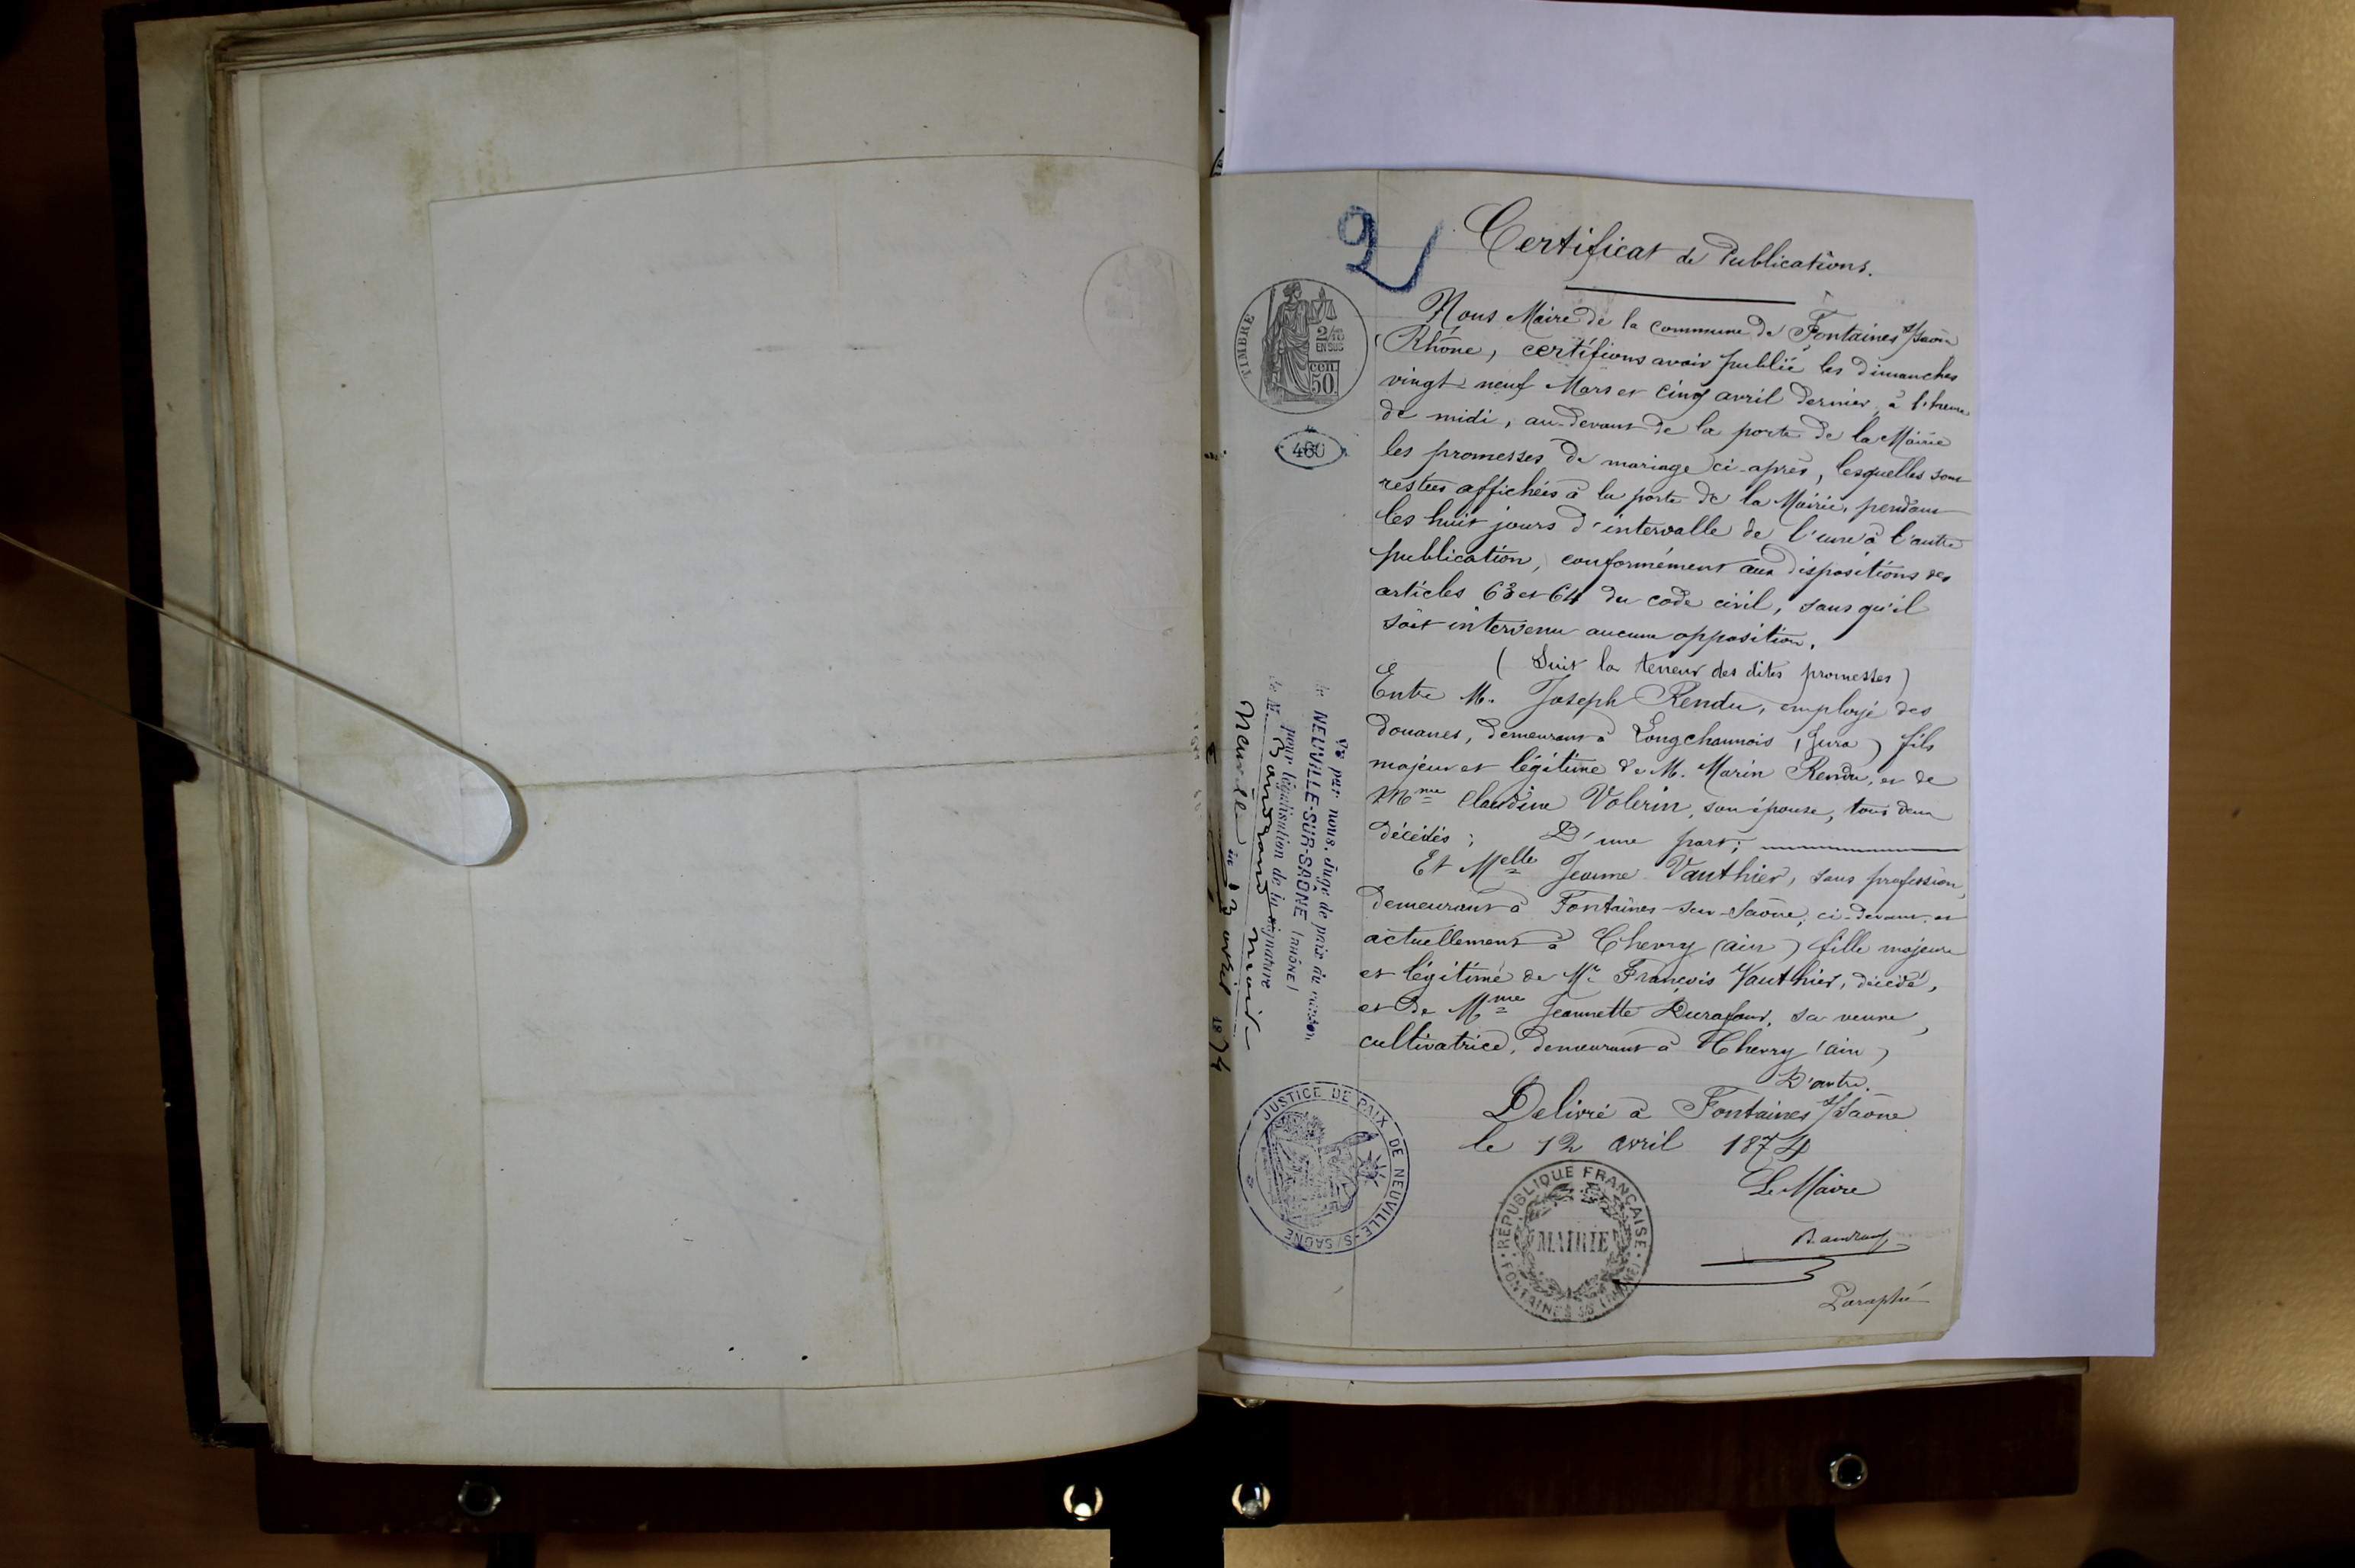 2
Certificat de Publications.
Nous Maire de la commune de Fontaines s/Saône
(Rhône, certifions avoir publié les dimanches
vingt-neuf Mars et cinq avril dernier, à l'heure
de midi, au-devant de la porte de la Mairie
les promesses de mariage ci-après, lesquelles sont
restées affichées à la porte de la Mairie, pendant
les huit jours d'intervalle de l'une à l'autre
publication, conformément aux dispositions des
articles 63 et 64 du code civil, sans qu'il
soit intervenu aucune opposition.
(Suit la teneur des dites promesses)
Entre M. Joseph Rendu, employé des
douanes, demeurant à Longchaumois (Jura) fils
majeur et légitime de M. Marin Rendu, et de
Mme Claudine Volerin, son épouse, tous deux
décédés; D'une part;
Et Melle Jeanne Vauthier, sans profession,
demeurant à Fontaines-sur-Saône, ci-devant et
actuellement à Chevry (ain) fille majeure
et légitime de Mr François Vauthier, décédé,
et de Mme Jeannette Durafour, sa veuve,
cultivatrice, demeurant à Chevry (ain)
D'autre.
Délivré à Fontaines s/Saône
le 12 avril 1874
Le Maire
Paraphé
TIMBRE
2/10
EN SUS
50 cen
460
Vu par nous, Juge de paix du canton
de NEUVILLE-SUR-SAÔNE (RHÔNE)
pour légalisation de la signature
de M. Baudrand maire
Neuville le 13 avril 1874
JUSTICE DE PAIX DE NEUVILLE-S/SAÔNE
RÉPUBLIQUE FRANÇAISE
MAIRIE
FONTAINES S/S (RHÔNE)